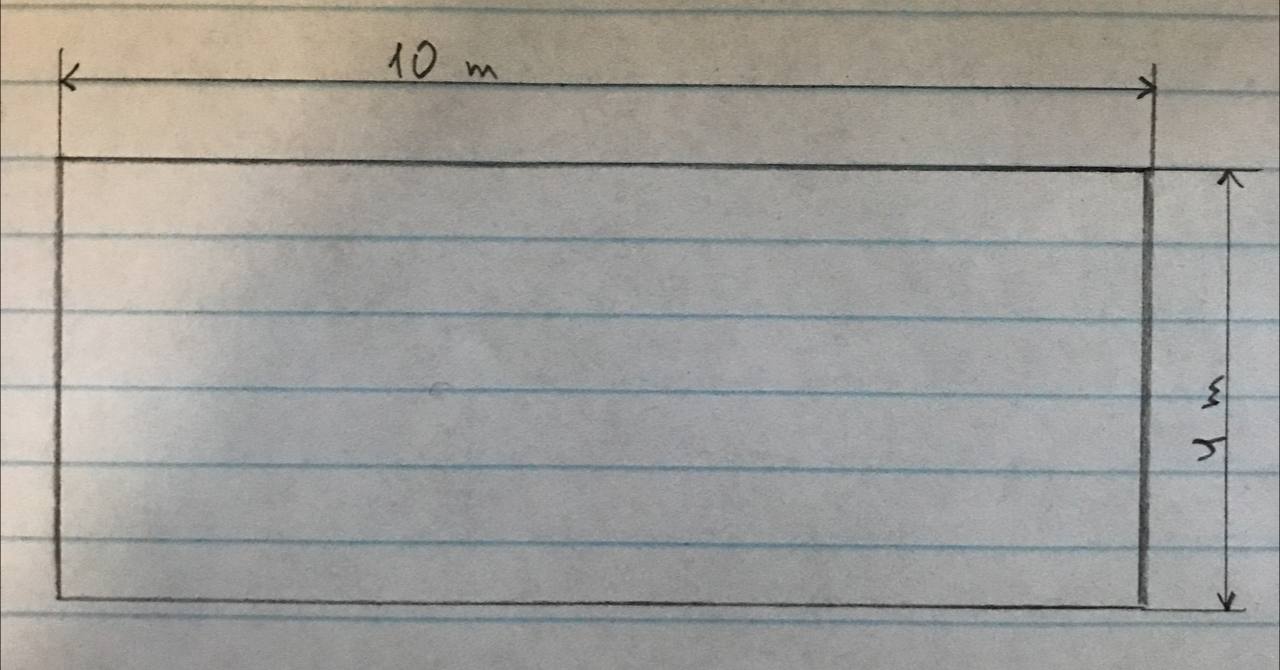 10 m
4 m